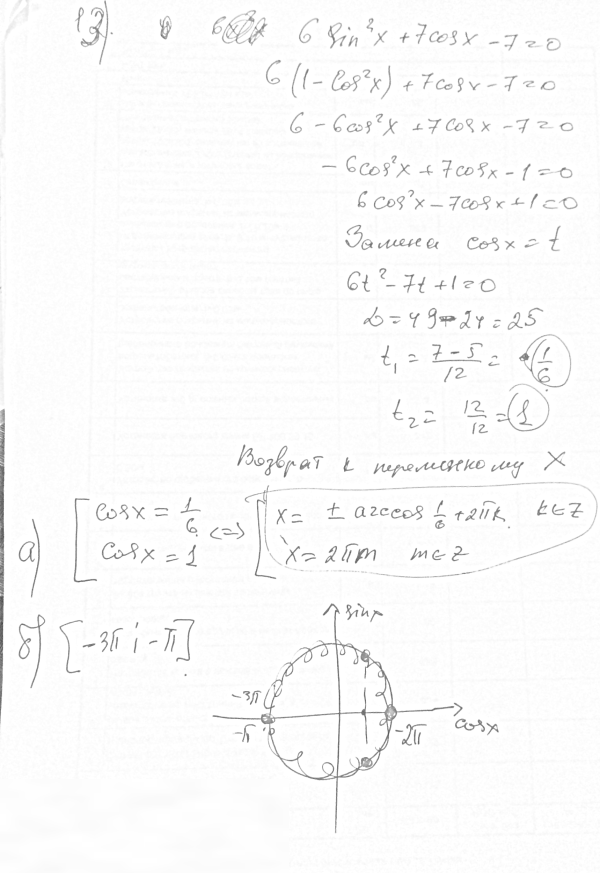 13). 6 sin²x + 7cosx - 7 = 0
6 (1 - cos²x) + 7cosx - 7 = 0
6 - 6cos²x + 7cosx - 7 = 0
- 6cos²x + 7cosx - 1 = 0
6cos²x - 7cosx + 1 = 0
Замена cosx = t
6t² - 7t + 1 = 0
D = 49 - 24 = 25
t₁ = (7 - 5)/12 = 1/6
t₂ = 12/12 = 1
Возврат к переменному x
а) [ cosx = 1/6 <=> [ x = ± arccos 1/6 + 2πk k∈Z
cosx = 1 x = 2πm m∈Z
б) [-3π ; -π]
sinx
-3π
-π
-2π
cosx